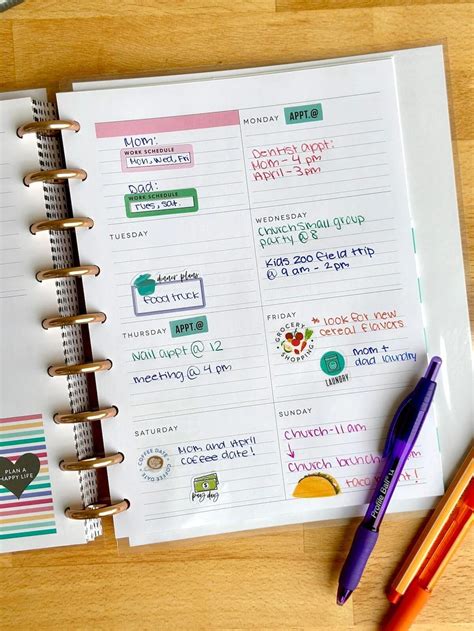 Mom:
WORK SCHEDULE
Mon, Wed, Fri
Dad:
WORK SCHEDULE
Tues, Sat.
MONDAY
APPT.@
Dentist appt:
Mom - 4 pm
April - 3 pm
TUESDAY
dinner plans
food truck
WEDNESDAY
Church Small group
party @ 8
Kids zoo field trip
@ 9 am - 2 pm
THURSDAY
APPT.@
Nail appt @ 12
meeting @ 4 pm
FRIDAY
GROCERY
SHOPPING
* look for new
cereal flavors
LAUNDRY
mom +
dad laundry
SATURDAY
COFFEE DATE
COFFEE DATE
Mom and April
coffee date!
pay day
SUNDAY
Church - 11 am
Church brunch
taco
PLAN A
HAPPY LIFE
Profile Ball